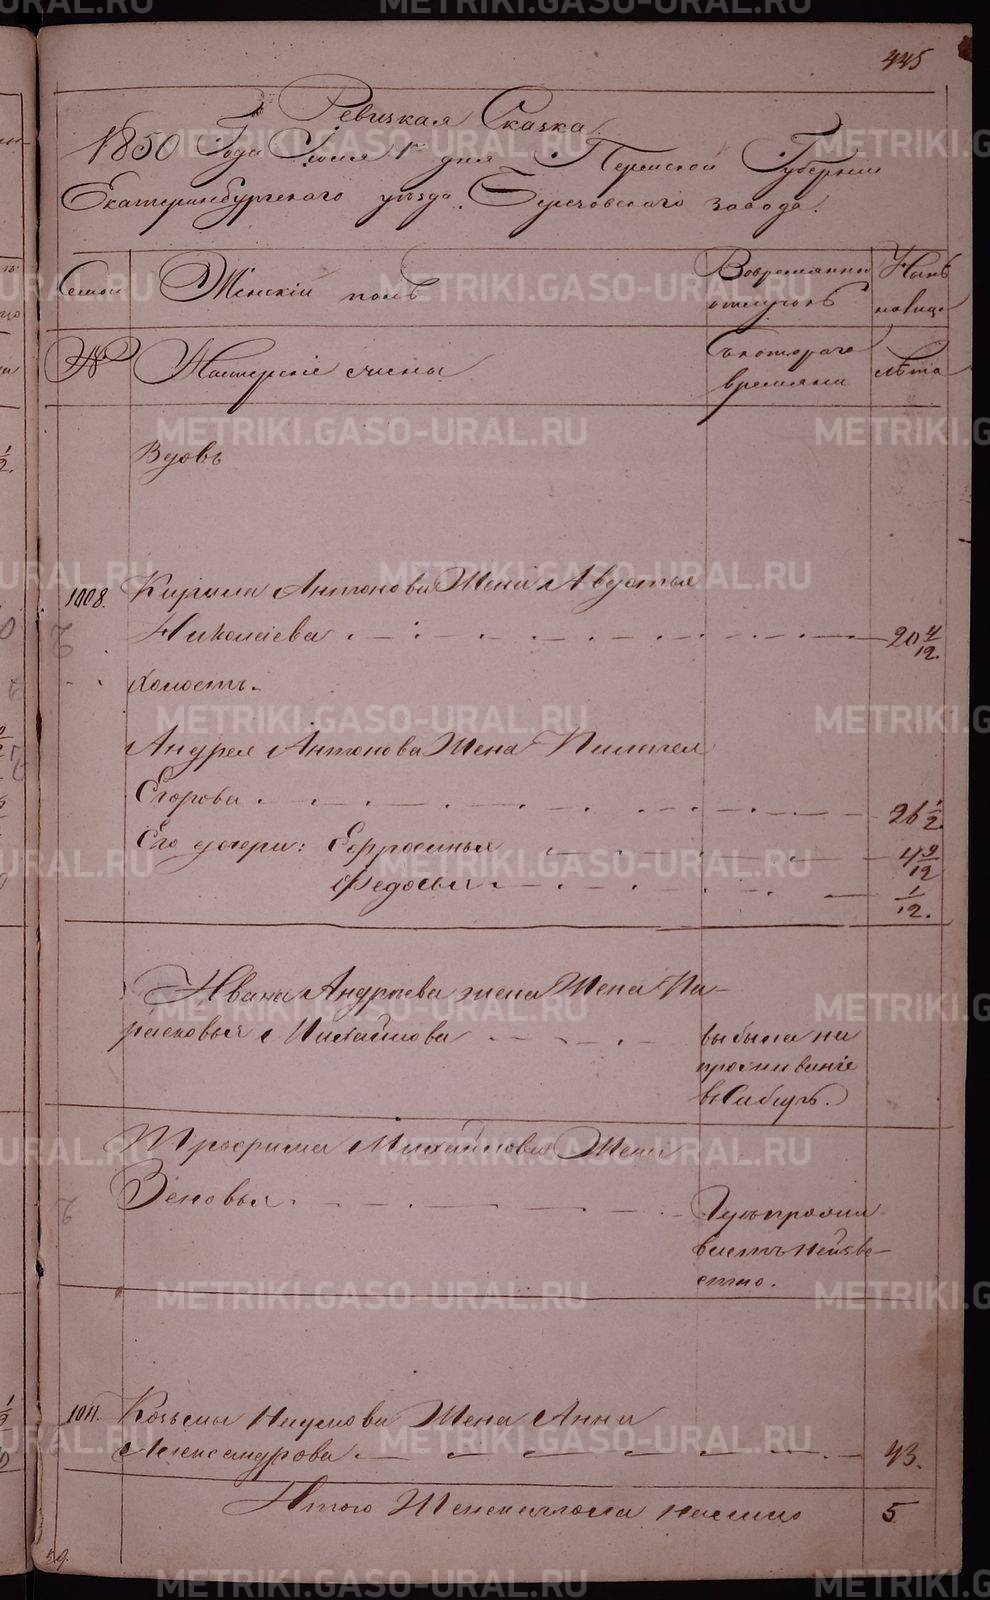 445
Ревизкая Сказка.
1850 Года Июля 1 дня Пермской Губернии
Екатеринбургского уезда. Березовского завода.
Семьи Женский полъ Вовремянной отлучкѣ Нынѣ налицо
№ Мастерскiе съ котораго времяни лѣта
Вдовъ
1008. Кирила Антонова Жена Авдотья
Николаева 20 4/12.
Холостъ.
Андрея Антонова Жена Пилагея
Егорова 26 1/2.
Его дочери: Ефросинья 4 9/12
Федосья 1/12.
Ивана Андрѣева жена Жена Па-
расковья Михайлова выбыла на
проживанiе
в Сибирь.
Трофима Михайлова Жена
Зеновья Гдѣ прожи
ваетъ неизве-
стно.
1011. Козьмы Наумова Жена Анна
Александрова 43.
Итого Женска пола налицо 5
METRIKI.GASO-URAL.RU